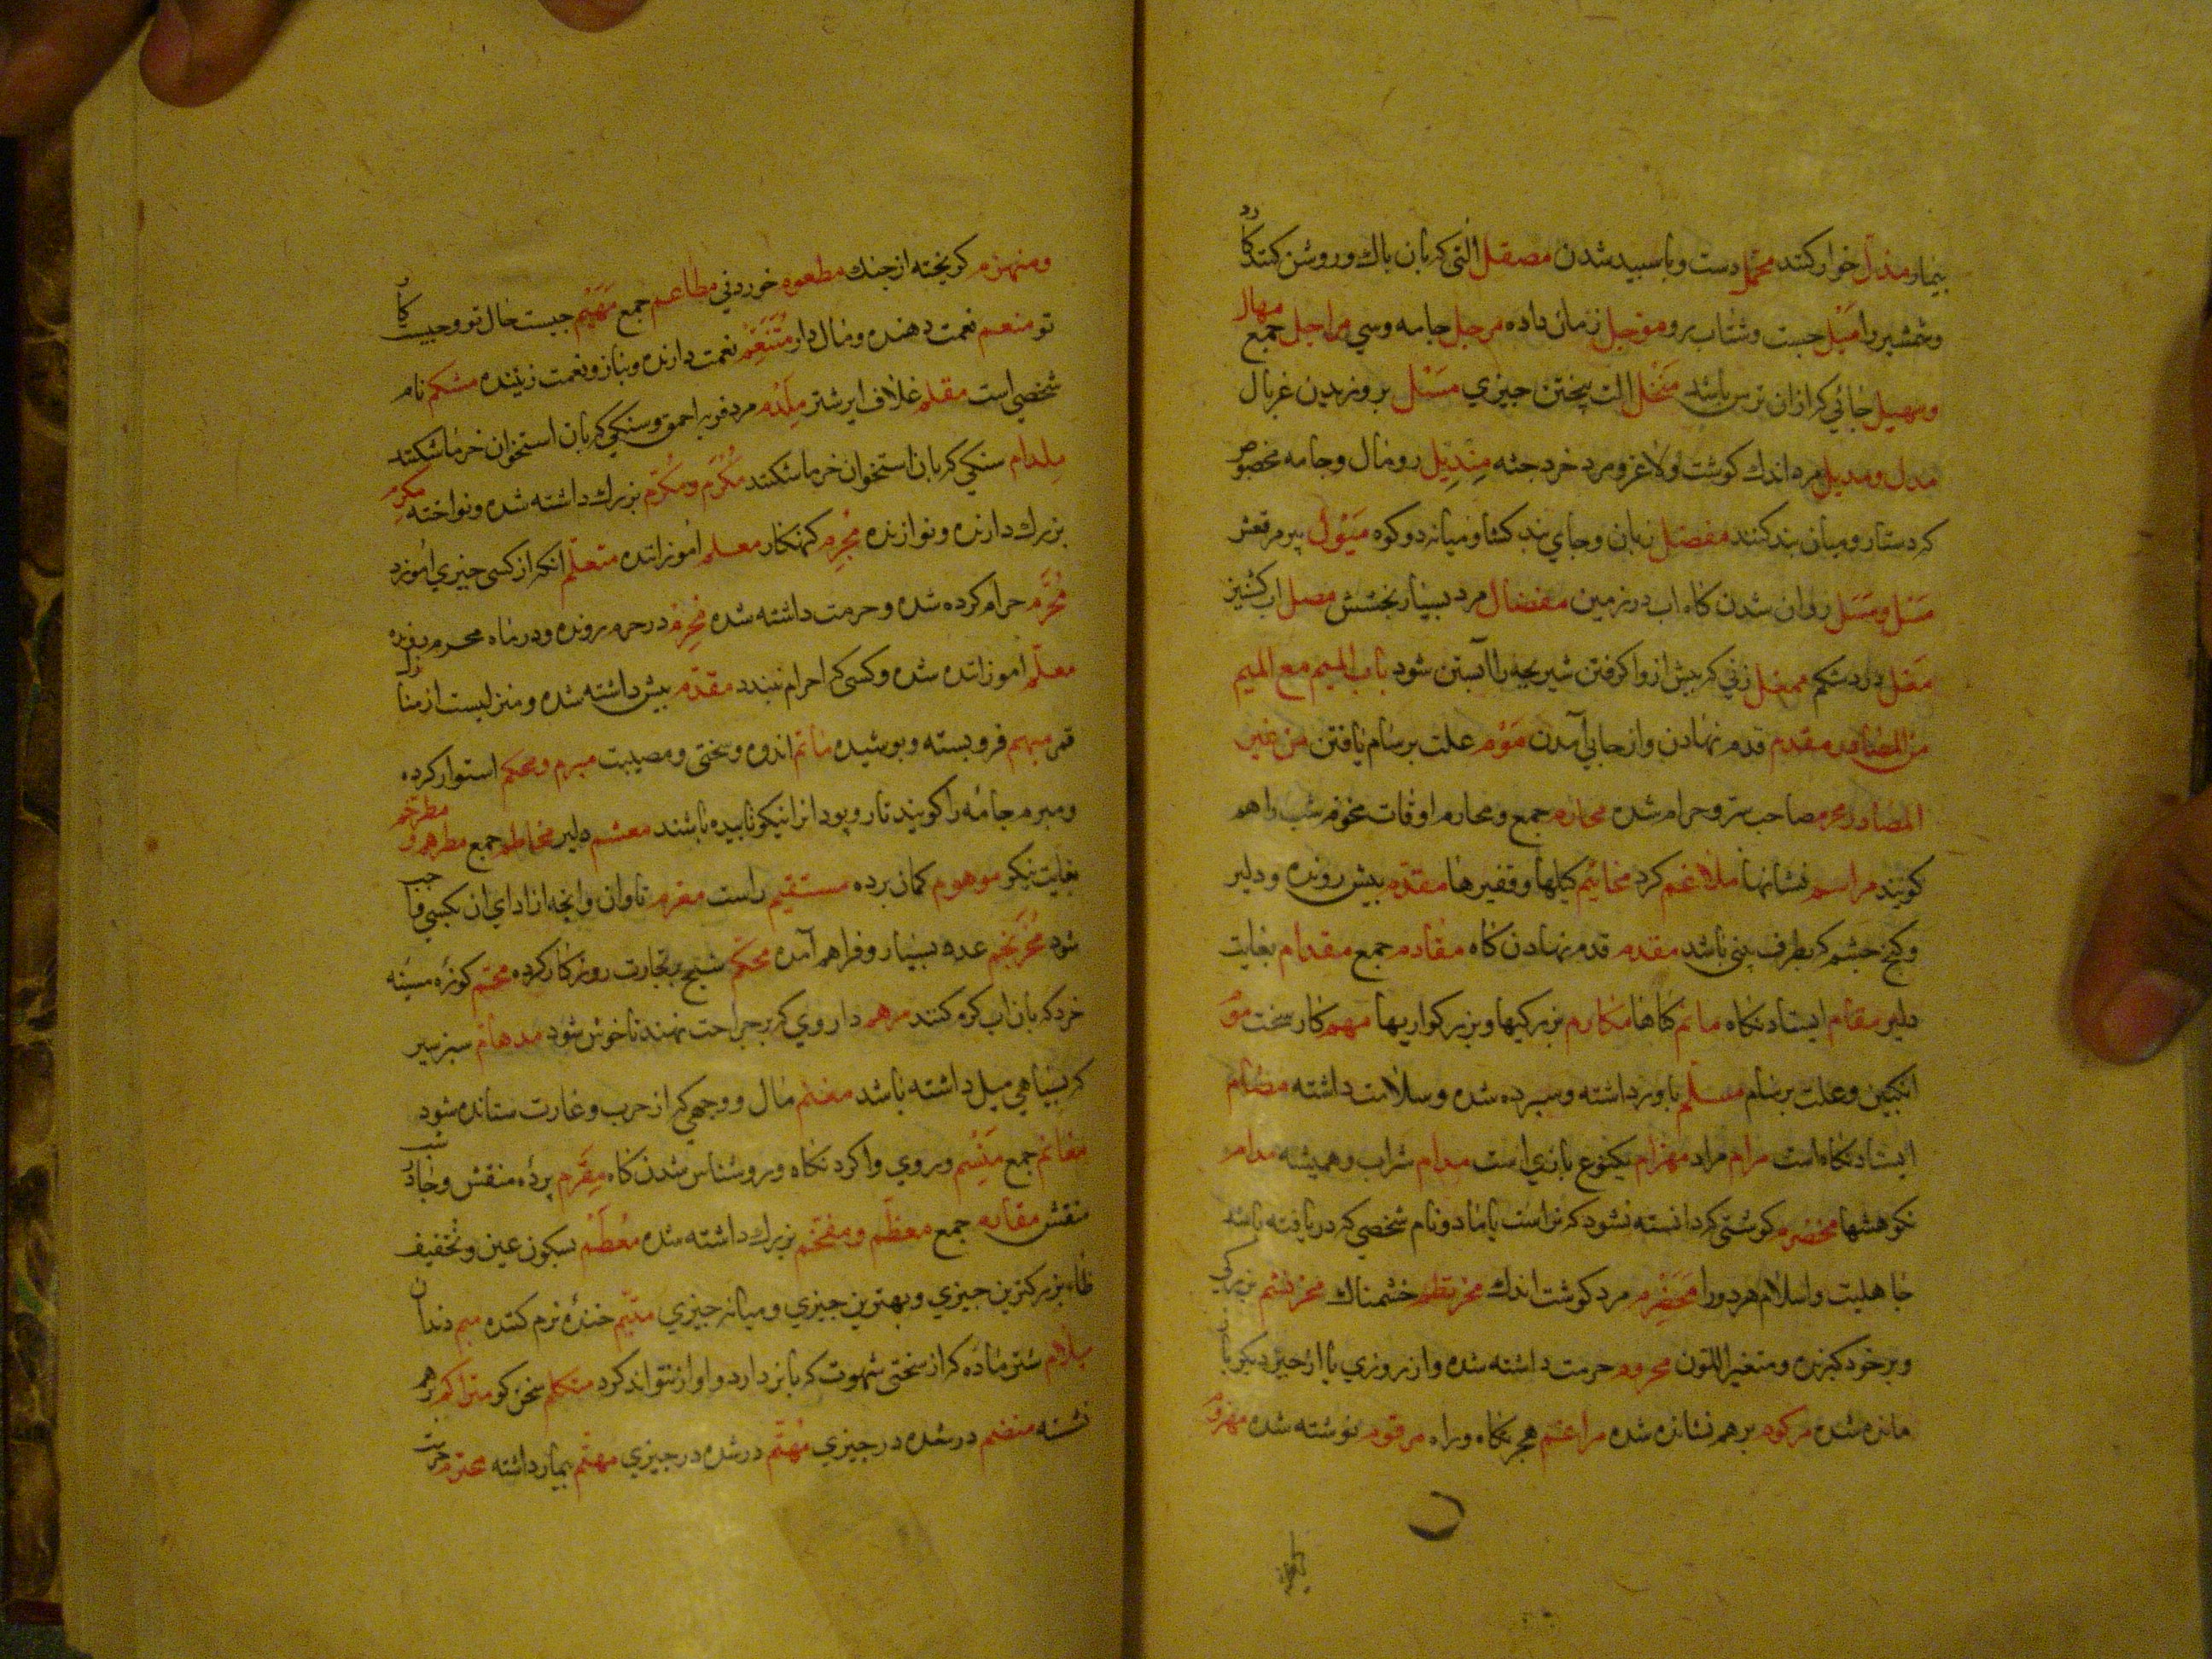 بیمار مذل خوار کننده مجمل دست وپا سپید شدن مصقل التی که بان پاك وروشن کنند کارد
وشمشیر را مثیل جست وشتاب رو موجل زمان داده مرجل جامه وسی مراجل جمع مهال
ومهیل جائی که ازان ترس باشد منخل الت پختن چیزی مسئل پرویزیدن غربال
مدل ومدیل مرد اندك کوشت ولاغر ومرد خرد جثه مندیل رومال وجامه مخصوص
که دستار ومیان بند کنند مفصل زبان وجای بند کشا ومیانه دو کوه
مسل ومسل روان شدن کاه اب در زمین مفضال مرد بسیار بخشش مصل اب کشنیز
مغل درد شکم ممغل زنی که پیش از وا کرفتن شیر بچه را آبستن شود باب المیم مع المیم
من المصادر مقدم قدم نهادن واز جایی آمدن موم علت برسام یافتن من غیر
المصادر محرم صاحب ستر وحرام شده محارم جمع ومحارم اوقات مخوف شب را هم
کویند مراسم نشانها ملاغم کرد مخاتیم کیلها وقفیزها مقدم پیش رونده ودلیر
وکنج چشم که بطرف بینی باشد مقدم قدم نهادن کاه مقادم جمع مقدام بغایت
دلیر مقام ایستادنکاه ماتم کاها مکارم بزرکیها وبزرکواریها مهم کار سخت موم
انکبین وعلت برسام مسلم باور داشته وسپرده شده وسلامت داشته مصام
ایستادنکاه است مرام مراد مهزام یکنوع بازی است مدام شراب وهمیشه مدام
نکوهشها مخضرم کوشتی که دانسته نشود که نر است یا ماده ونام شخصی که دریافته باشد
جاهلیت واسلام هر دو را مرد کوشت اندك مخرنطم خشمناك مخرنشم بزرکی
وبر خود کیرنده ومتغیر اللون محروم حرمت داشته شده واز روزی یا از چیز دیکر باز
مانده شده مرکوم بر هم نشانده شده مراغم هجرتکاه وراه مرقوم نوشته شده مهزوم
ومنهزم کریخته از جنك مطعوم خوردنی مطاعم جمع مهیم چیست حال تو وچیست کار
تو منعم نعمت دهنده ومال دار متنعم نعمت دارنده وبناز ونعمت زینده مشکم نام
شخصی است مقلم غلاف ایر شتر ملدم مرد فربه احمق وسنکی که بان استخوان خرما شکنند
ملدام سنکی که بان استخوان خرما شکنند مکرم ومکرم بزرك داشته شده ونواخته مکرم
بزرك دارنده ونوازنده مجرم کنهکار معلم اموزاننده متعلم انکه از کسی چیزی اموزد
محرم حرام کرده شده وحرمت داشته شده محرم در حرم رونده ودر ماه محرم رونده
معلم اموزانده شده وکسی که احرام نبندد مقدم پیش داشته شده ومنزلیست از منازل
قمر مبهم فرو بسته وپوشیده ماتم اندوه وسختی ومصیبت مبرم ومحکم استوار کرده
ومبرم جامه را کویند تار وپود انرا نیکو تابیده باشند معشم دلیر مخاطم جمع مطرهم ومطرخم
بغایت نیکو موهوم کمان برده مستقیم راست مغرم تاوان وانچه از ادای ان بکسی واجب
شود محرنجم عدد بسیار وفراهم آمده محکم شیخ بتجارت روزکار کرده محتم کوزه مسینه
خرد که بان اب کرم کنند مرهم داروی که بر جراحت نهند تا خوش شود مدهام سبز سیر
که بسیاهی میل داشته باشد مغنم مال ووجهی که از حرب وغارت ستانده شود
مغانم جمع منسم وروی وا کرد نکاه وروشناس شدن کاه مقرم پرده منقش وجادر شب
منقش مقارم جمع معظم ومفخم بزرك داشته شده معظم بسکون عین وتخفیف
ظاء بزرکترین چیزی وبهترین چیزی ومیانه چیزی خنده نرم کننده مبسم دندان
شتر ماده که از سختی شهوت که باز دارد واواز نتواند کرد متکلم سخن کو متراکم بر هم
نشسته منضم در شده در چیزی در شده در چیزی مهتم بیمار داشته محترم حرمت